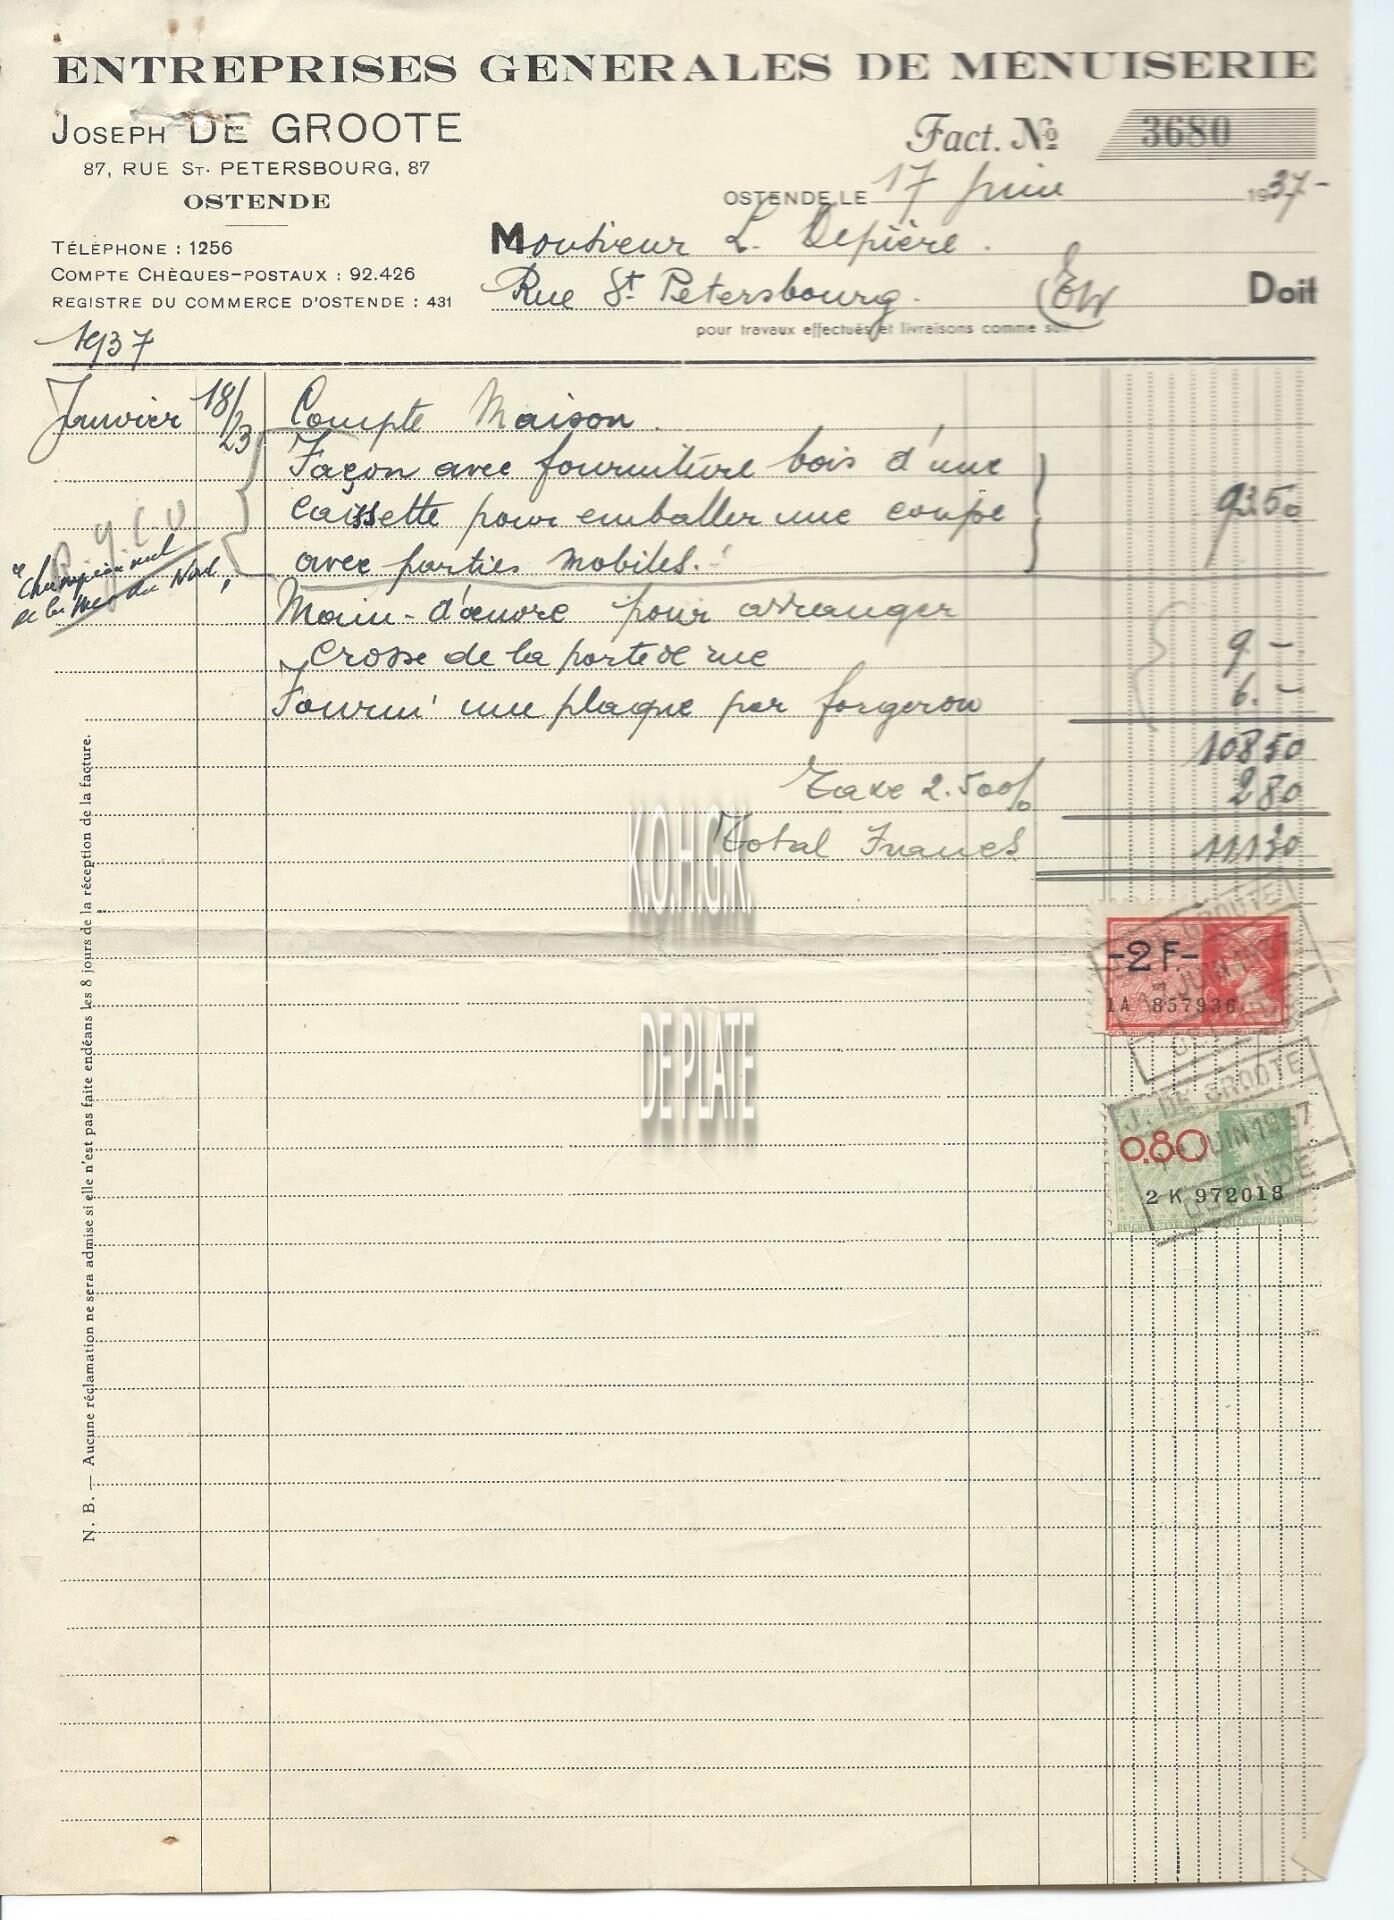 ENTREPRISES GENERALES DE MENUISERIE
JOSEPH DE GROOTE
87, RUE ST. PETERSBOURG, 87
OSTENDE
TÉLÉPHONE : 1256
COMPTE CHÈQUES-POSTAUX : 92.426
REGISTRE DU COMMERCE D'OSTENDE : 431
Fact. No 3680
OSTENDE, LE 17 juin 1937-
Monsieur L. Depière.
Rue St. Petersbourg. E/W Doit
pour travaux effectués et livraisons comme suit :
1937
Janvier 18/23 Compte Maison.
Façon avec fourniture bois d'une
caissette pour emballer une coupe 93.50
avec parties mobiles.
R.Y.C.O
"Championnat
de la Mer du Nord"
Main-d'œuvre pour arranger
Crosse de la porte de rue 9 -
Fourni une plaque par forgeron 6. -
108 50
Taxe 2.50 0/0 2 80
Total Francs 111 30
K.O.H.G.K.
DE PLATE
-2 F.-
1A 857936
J. DE GROOTE
17 JUIN 1937
OSTENDE
0.80
2 K 972018
J. DE GROOTE
17 JUIN 1937
OSTENDE
N. B. — Aucune réclamation ne sera admise si elle n'est pas faite endéans les 8 jours de la réception de la facture.